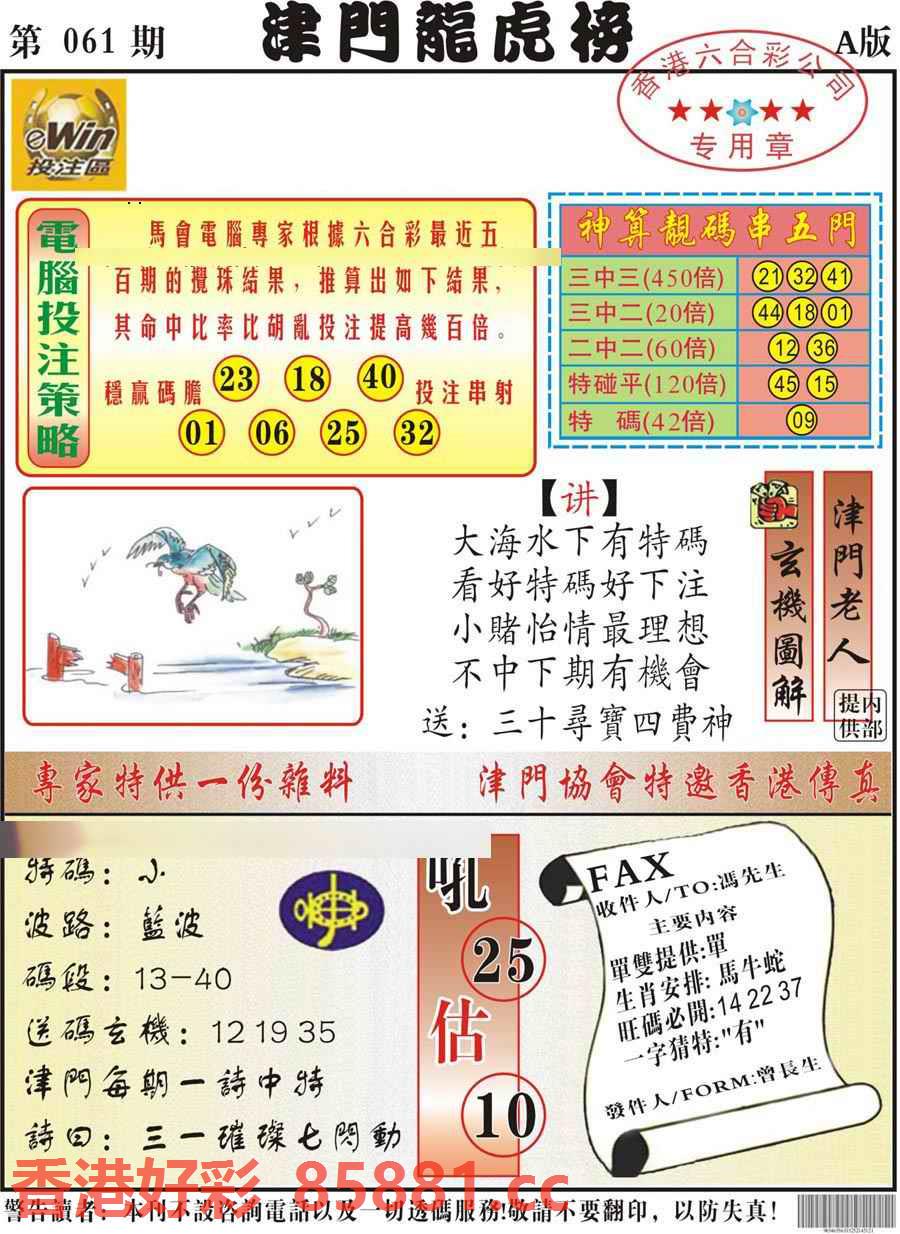 第 061 期
津門龍虎榜
A版
香港六合彩公司
专用章
eWin
投注區
電腦投注策略
馬會電腦專家根據六合彩最近五
百期的攪珠結果，推算出如下結果，
其命中比率比胡亂投注提高幾百倍。
穩贏碼膽 23 18 40 投注串射
01 06 25 32
神算靚碼串五門
三中三(450倍) 21 32 41
三中二(20倍) 44 18 01
二中二(60倍) 12 36
特碰平(120倍) 45 15
特 碼(42倍) 09
【讲】
大海水下有特碼
看好特碼好下注
小賭怡情最理想
不中下期有機會
送：三十尋寶四費神
玄機圖解
津門老人
内部提供
專家特供一份雜料
津門協會特邀香港傳真
特碼：小
波路：藍波
碼段：13-40
送碼玄機：12 19 35
津門每期一詩中特
詩曰：三一璀璨七閃動
吼
25
估
10
FAX
收件人/TO:馮先生
主要内容
單雙提供:單
生肖安排:馬牛蛇
旺碼必開:14 22 37
一字猜特:"有"
發件人/FORM:曾長生
香港好彩 85881.cc
警告讀者：本刊不設咨詢電話以及一切透碼服務!敬請不要翻印，以防失真!